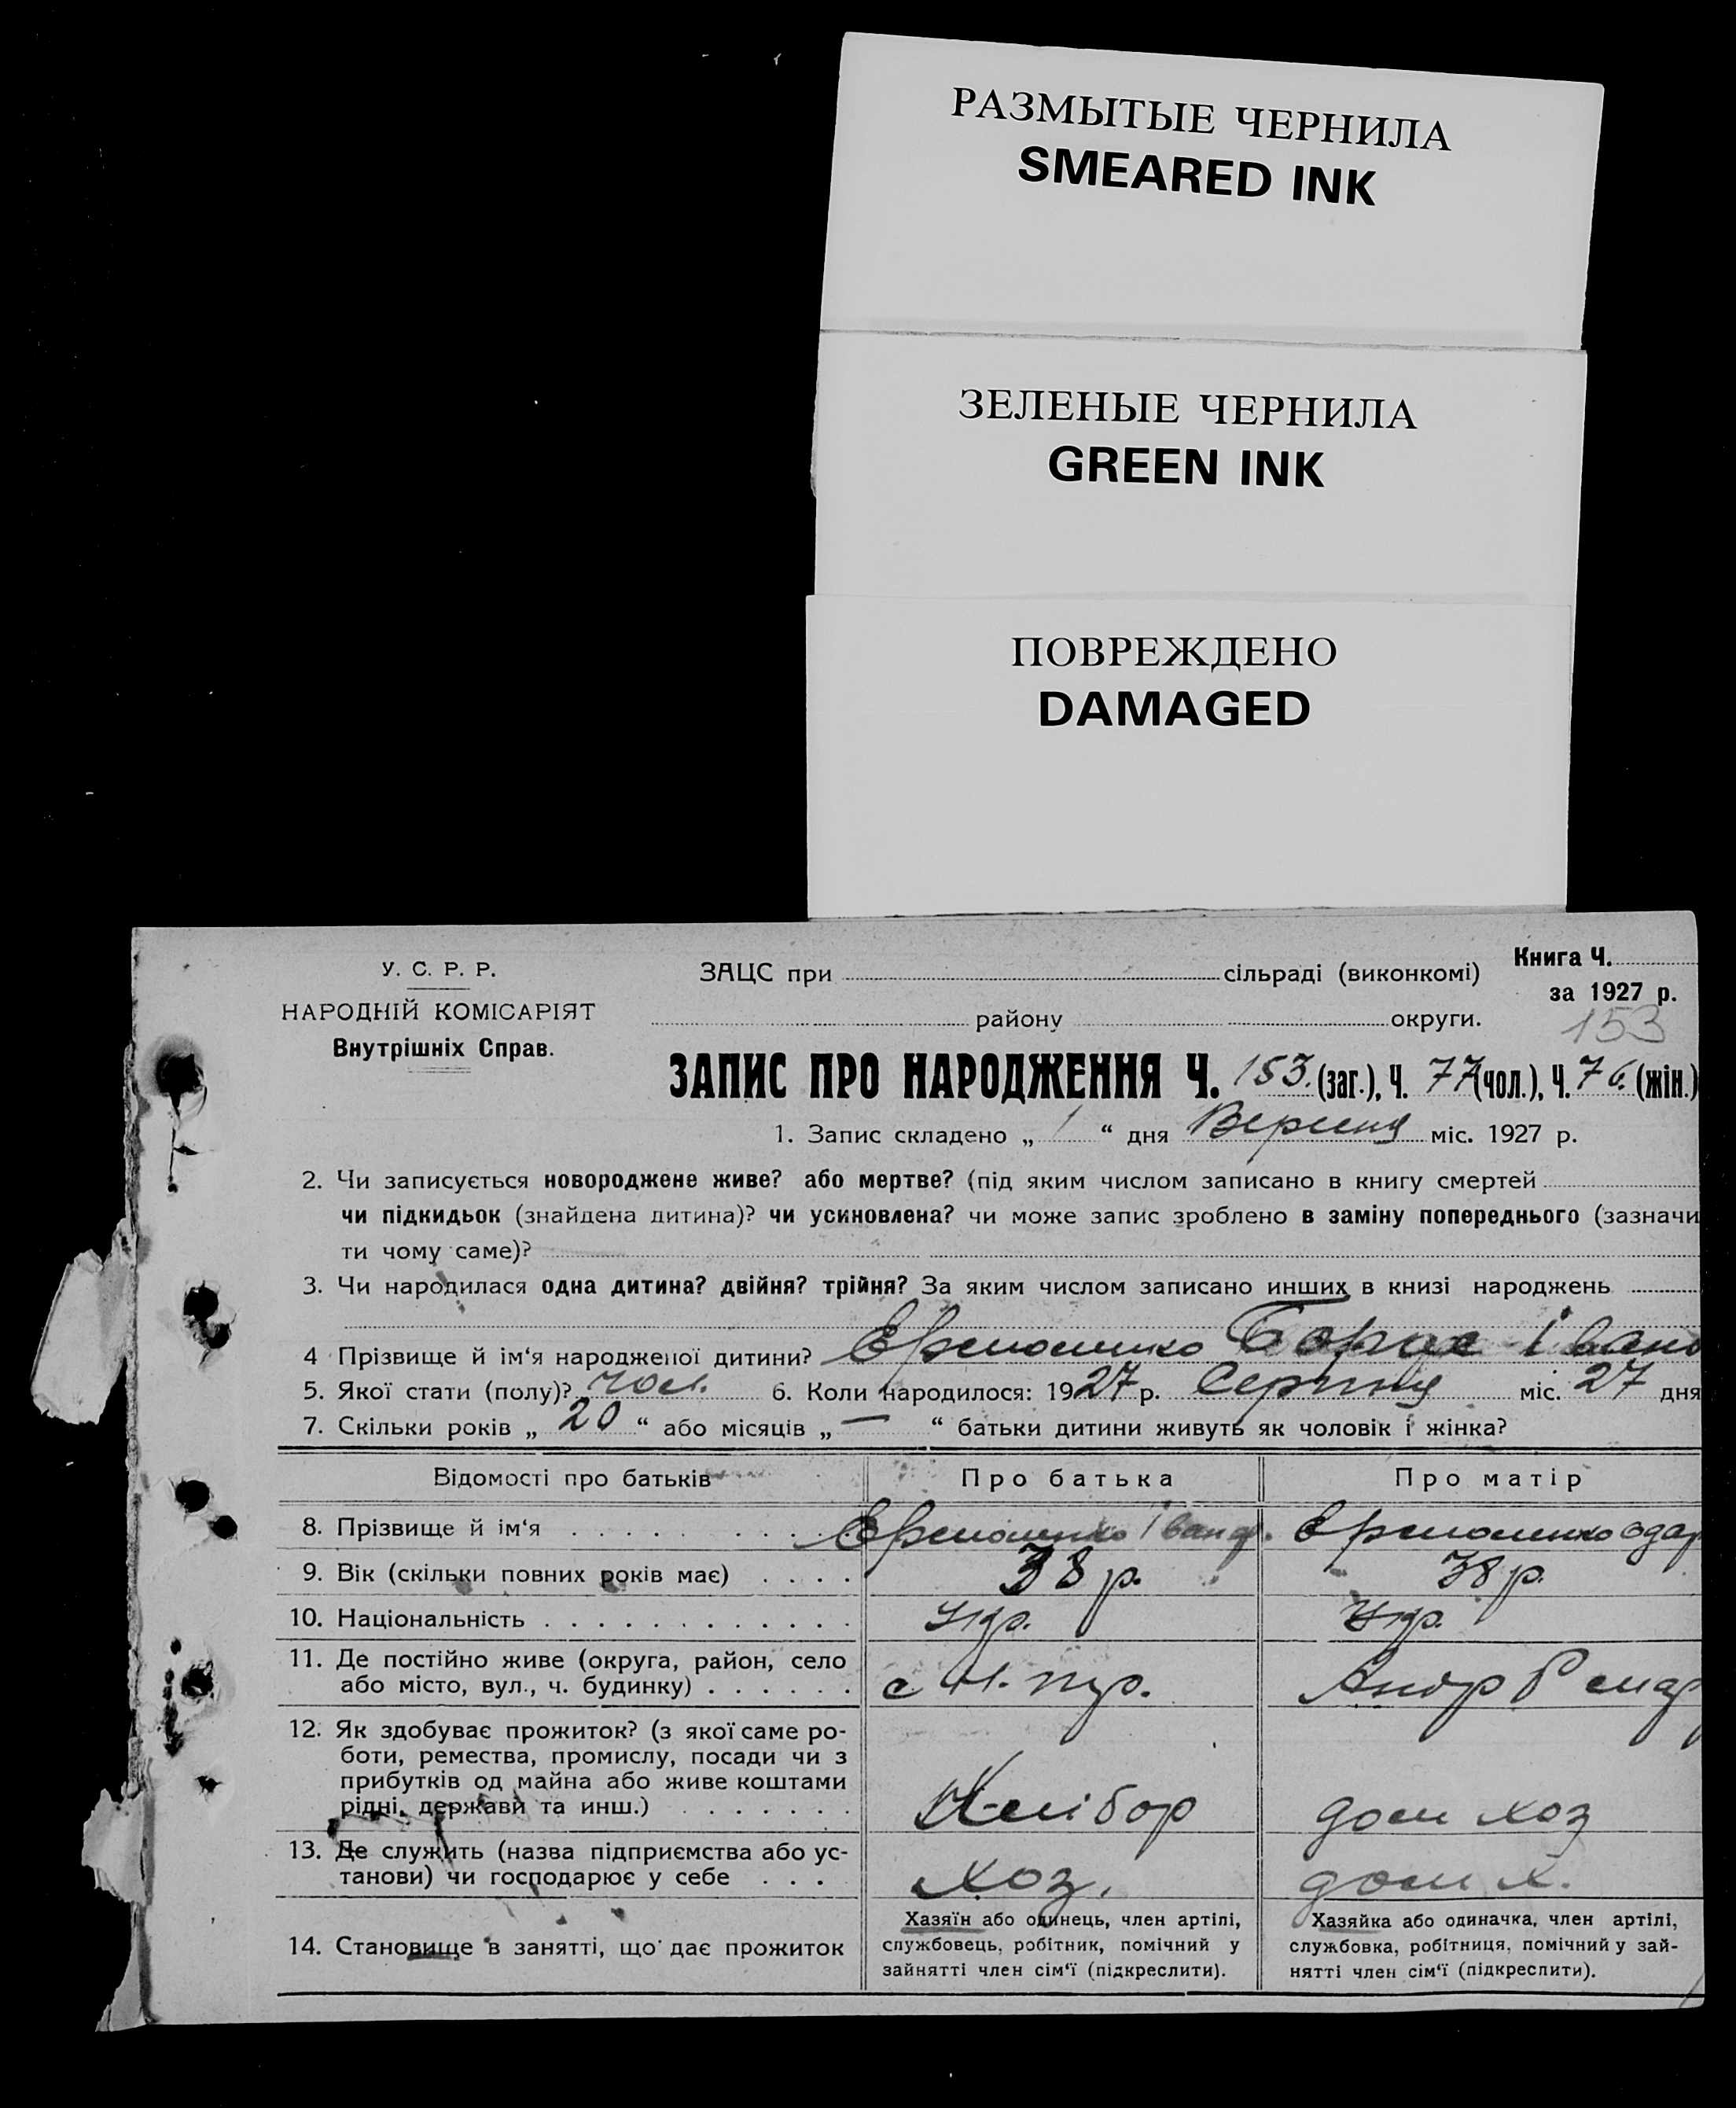 РАЗМЫТЫЕ ЧЕРНИЛА
SMEARED INK
ЗЕЛЕНЫЕ ЧЕРНИЛА
GREEN INK
ПОВРЕЖДЕНО
DAMAGED
У. С. Р. Р.
НАРОДНІЙ КОМІСАРІЯТ
Внутрішніх Справ.
ЗАЦС при сільраді (виконкомі)
району округи.
Книга Ч.
за 1927 р.
153
ЗАПИС ПРО НАРОДЖЕННЯ Ч. 153. (заг.), Ч. 77 (чол.), Ч. 76. (жін.)
1. Запис складено „ 1 “ дня Вересня міс. 1927 р.
2. Чи записується новороджене живе? або мертве? (під яким числом записано в книгу смертей
чи підкидьок (знайдена дитина)? чи усиновлена? чи може запис зроблено в заміну попереднього (зазначи
ти чому саме)?
3. Чи народилася одна дитина? двійня? трійня? За яким числом записано инших в книзі народжень
4 Прізвище й ім‘я народженої дитини? Борис Івано
5. Якої стати (полу)? чол. 6. Коли народилося: 1927 р. Серпня міс. 27 дня
7. Скільки років „ 20 “ або місяців „ — “ батьки дитини живуть як чоловік і жінка?
Відомості про батьків Про батька Про матір
8. Прізвище й ім‘я Іван
9. Вік (скільки повних років має) 38 р. 38 р.
10. Національність Укр. Укр.
11. Де постійно живе (округа, район, село
або місто, вул., ч. будинку)
12. Як здобуває прожиток? (з якої саме ро-
боти, ремества, промислу, посади чи з
прибутків од майна або живе коштами
рідні, держави та инш.) Хлібор дом хоз
13. Де служить (назва підприємства або ус-
танови) чи господарює у себе хоз. дом х.
14. Становище в занятті, що дає прожиток
Хазяїн або одинець, член артілі,
службовець, робітник, помічний у
зайнятті член сім‘ї (підкреслити).
Хазяйка або одиначка, член артілі,
службовка, робітниця, помічний у зай-
нятті член сім‘ї (підкреслити).